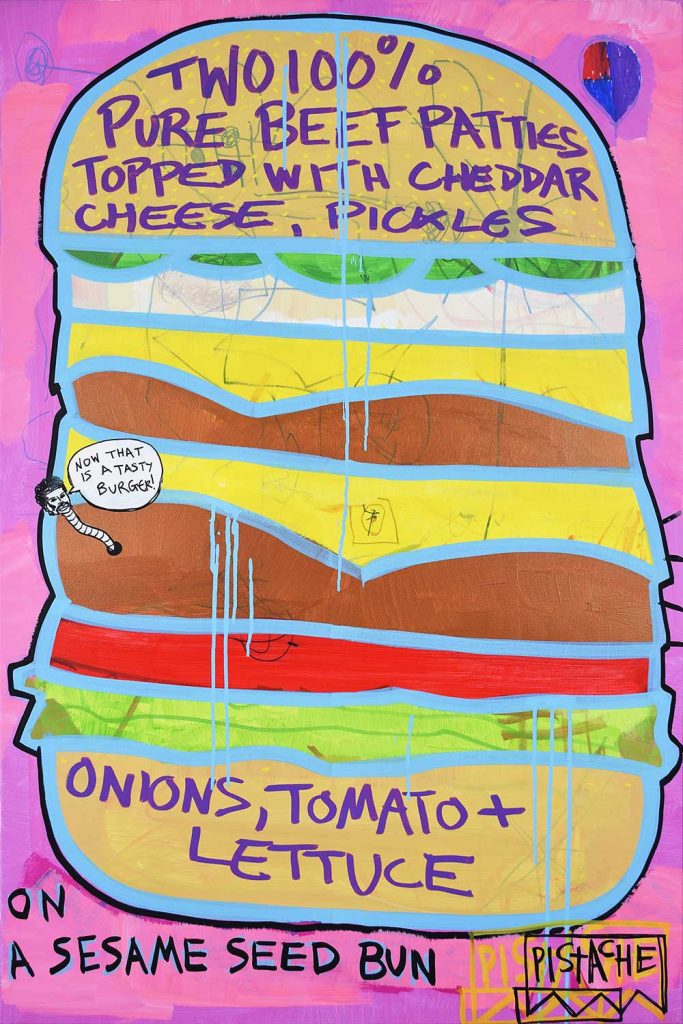 TWO 100%
PURE BEEF PATTIES
TOPPED WITH CHEDDAR
CHEESE, PICKLES
NOW THAT
IS A TASTY
BURGER!
ONIONS, TOMATO +
LETTUCE
ON
A SESAME SEED BUN
PISTACHE